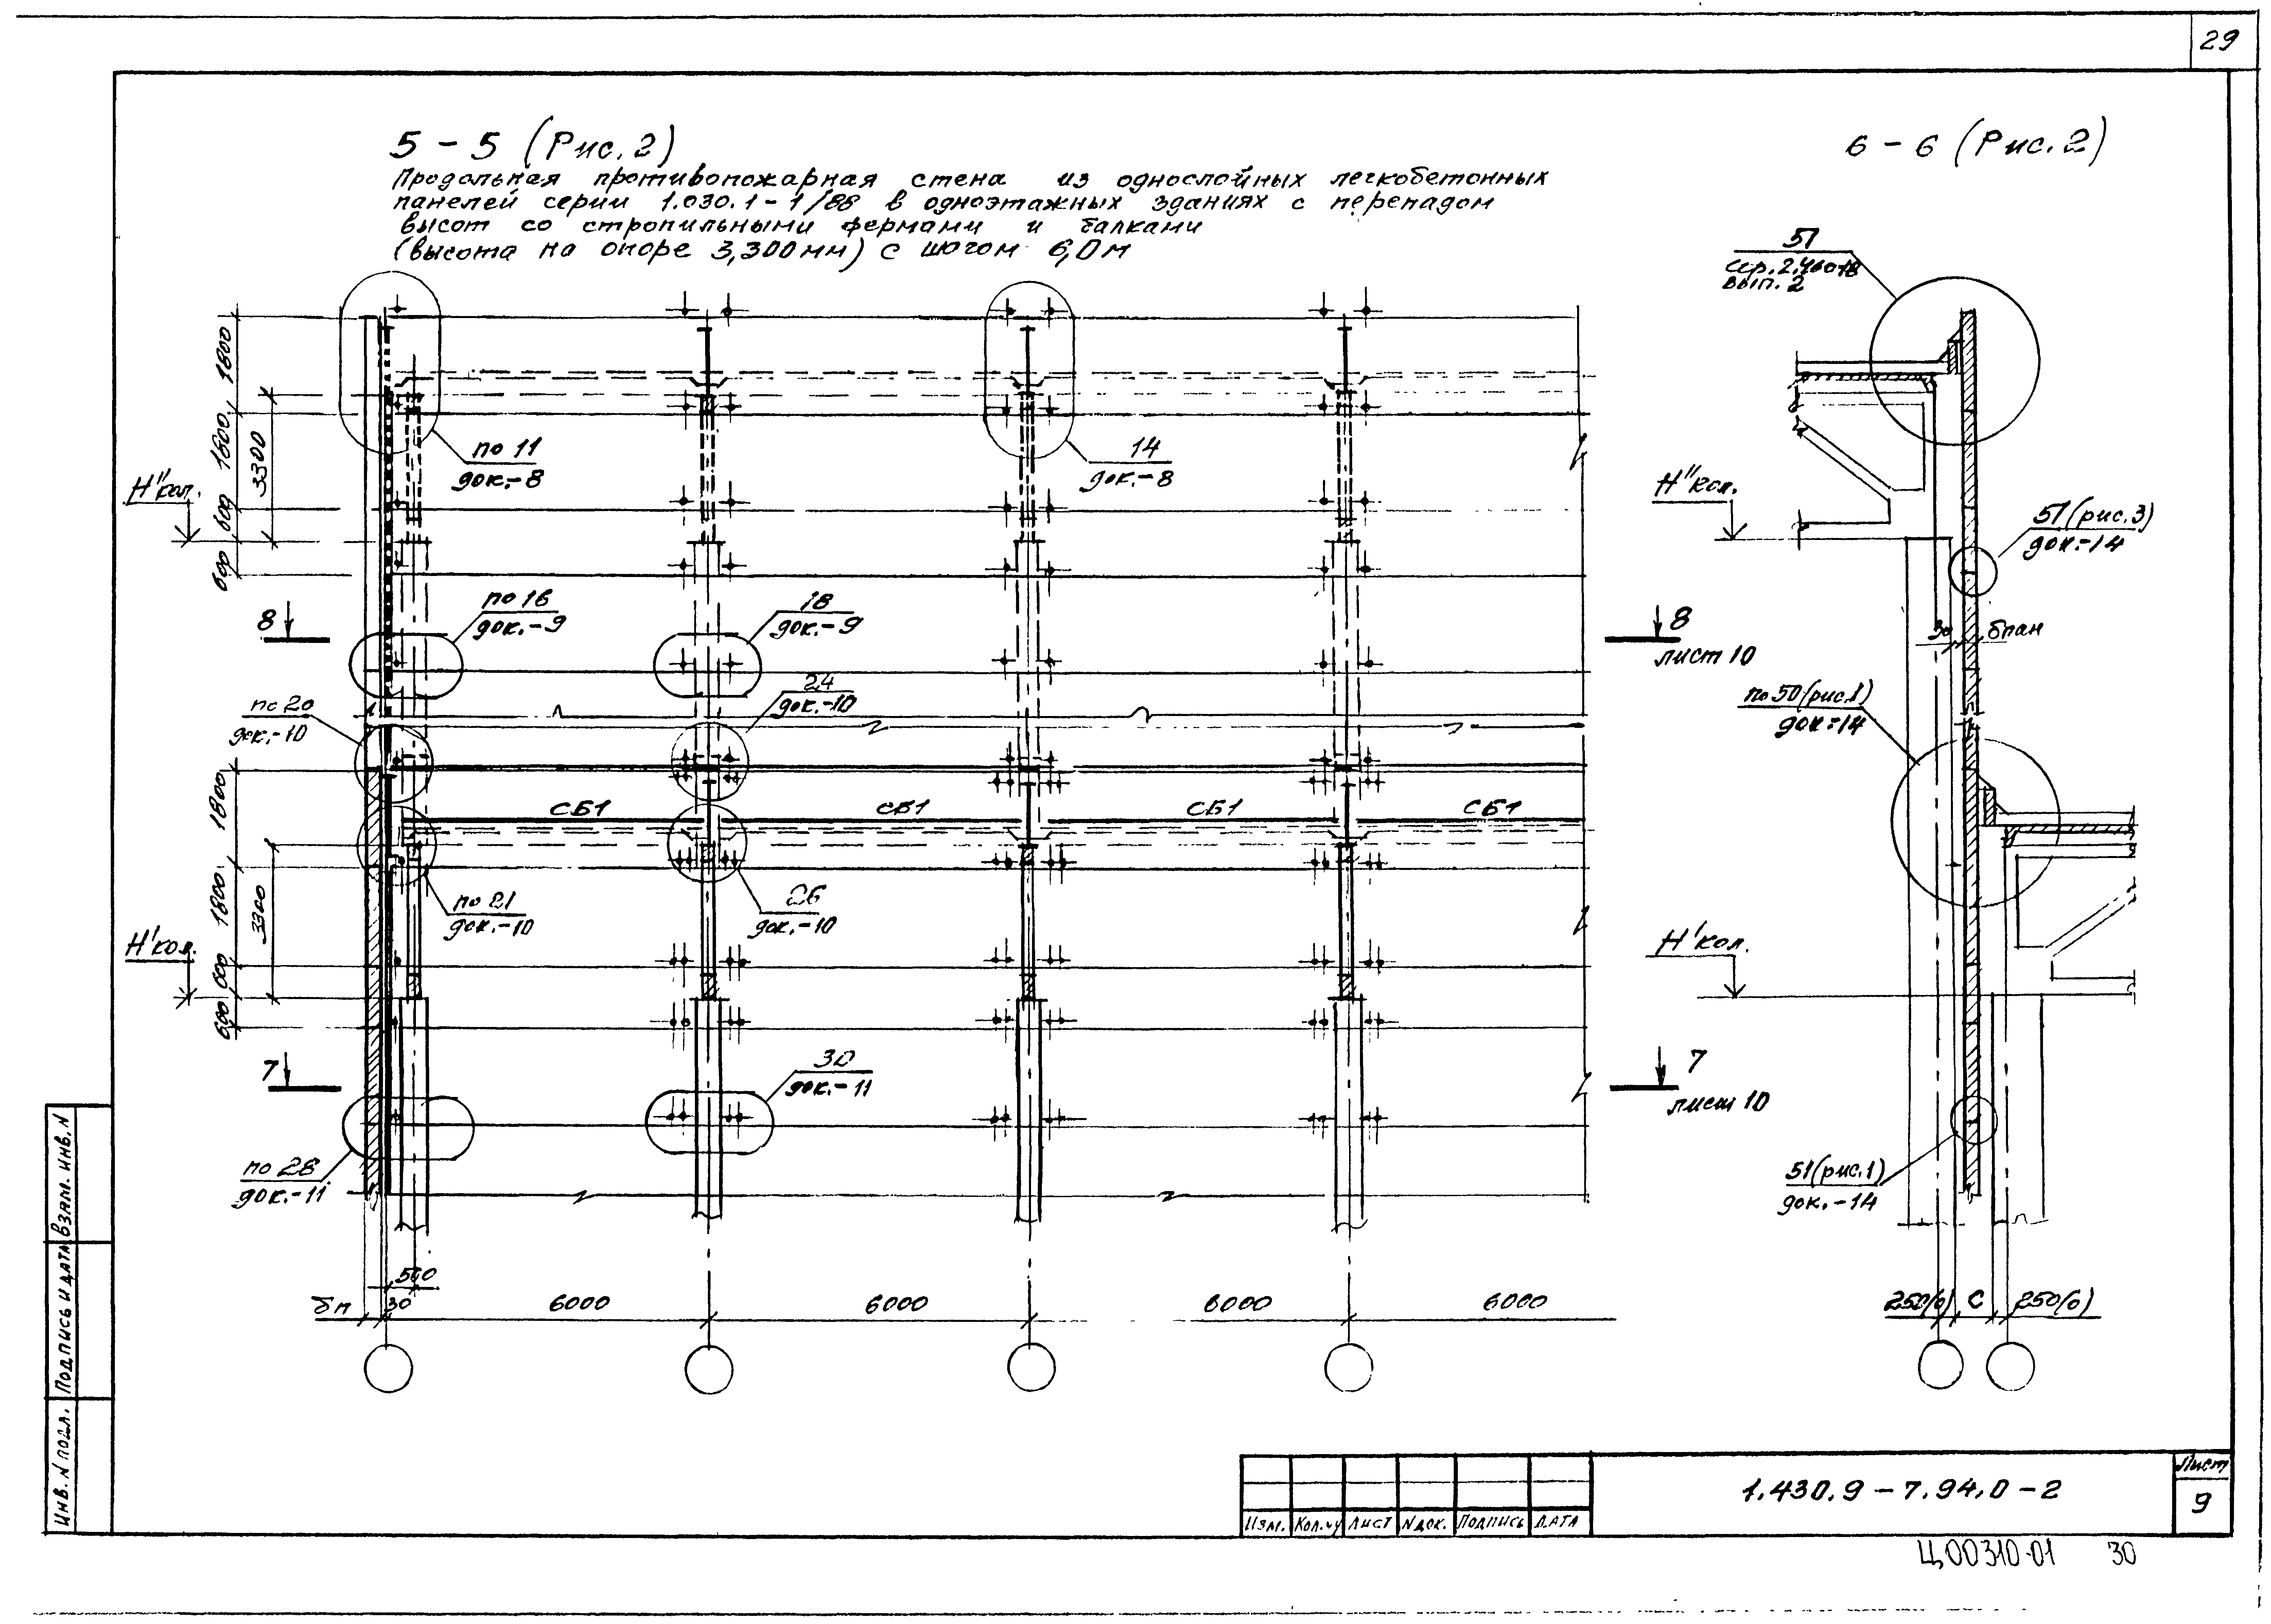 29
5 – 5 (Рис. 2)
Продольная противопожарная стена из однослойных легкобетонных
панелей серии 1.030.1 – 1/88 в одноэтажных зданиях с перепадом
высот со стропильными фермами и балками
(высота на опоре 3,300мм) с шагом 6,0м
6 – 6 (Рис. 2)
51
сер. 2.460-18
вып. 2
1800
1800
600
600
3300
Н"кол.
по 11
док.-8
14
док.-8
Н"кол.
51 (рис. 3)
док.-14
8
по 16
док.-9
18
док.-9
8
лист 10
30
δпан
по 20
док.-10
24
док.-10
по 50 (рис.1)
док.-14
1800
1800
600
600
3300
СБ1
СБ1
СБ1
СБ1
Н'кол.
по 21
док.-10
26
док.-10
Н'кол.
7
30
док.-11
7
лист 10
по 28
док.-11
51 (рис.1)
док.-14
500
δп
30
6000
6000
6000
6000
250(0)
С
250(0)
Инв. N подл.
Подпись и дата
Взам. инв. N
Изм.
Кол.уч
Лист
N док.
Подпись
Дата
1.430.9 – 7.94.0 – 2
Лист
9
Ц00310-01
30